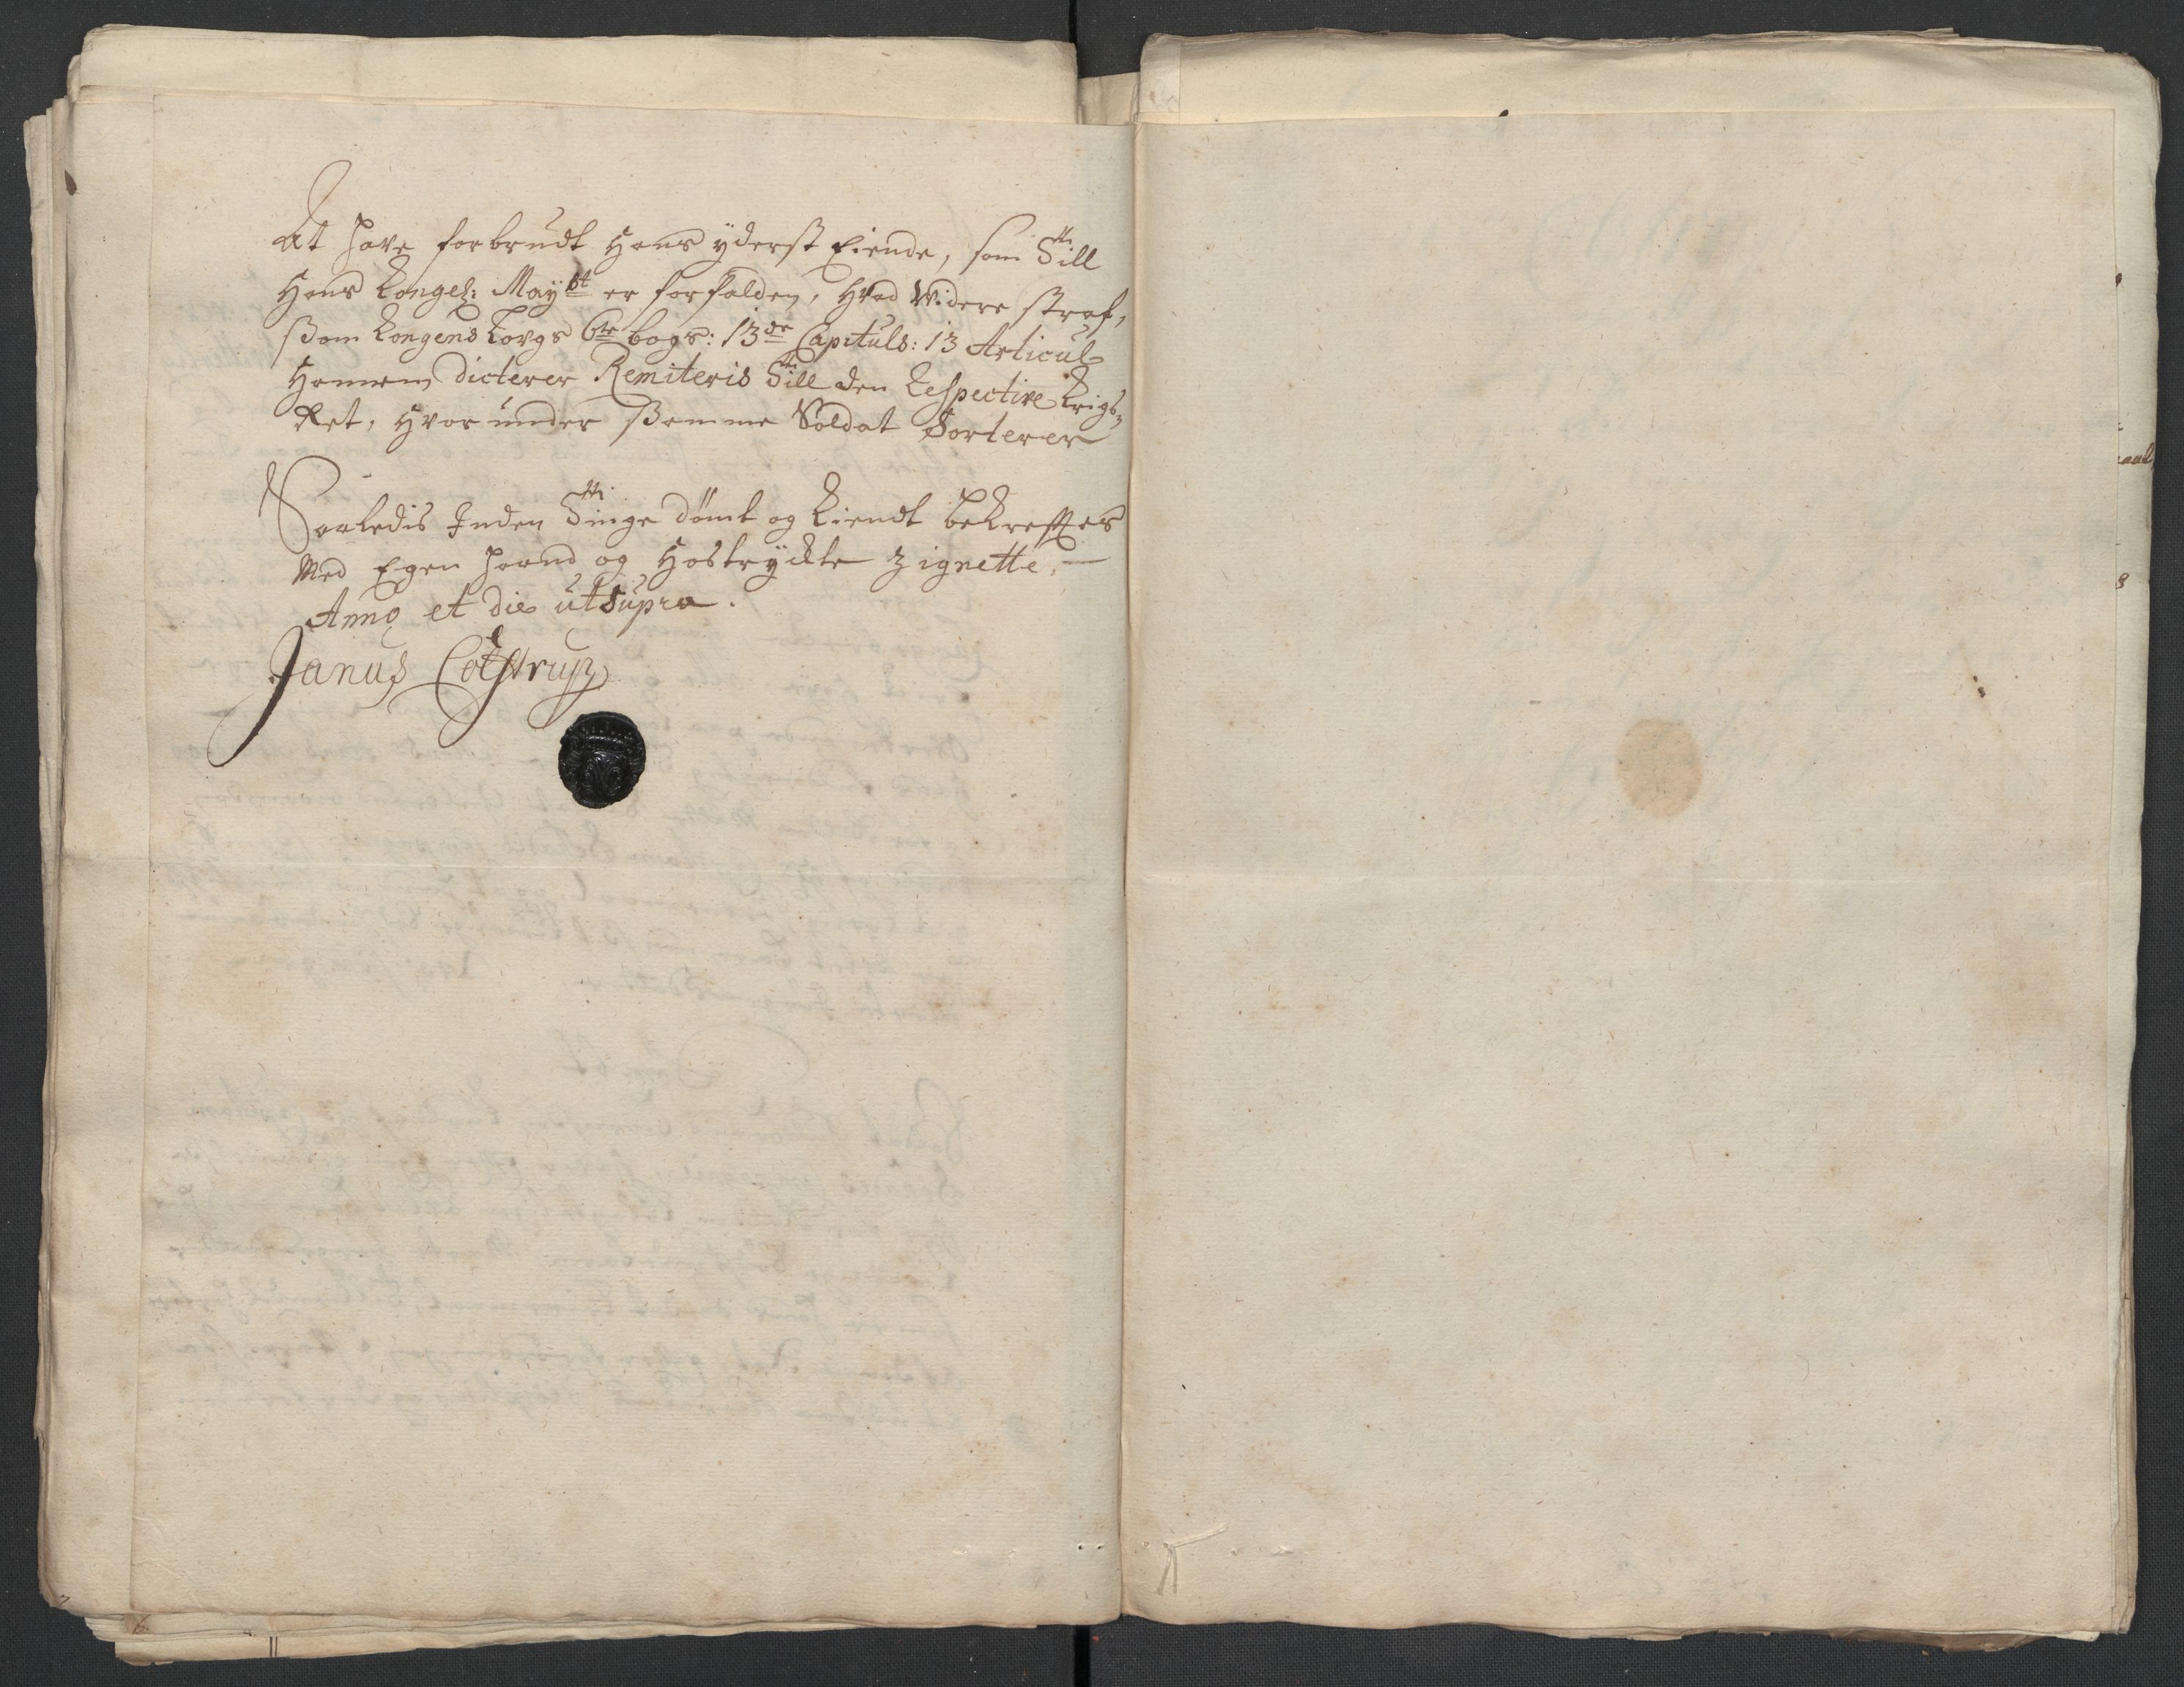 At have forbrudt Hans yderst Eiende, som Till
Hans Kongel: Mayst er forfalden, Hvad Widere straf,
ßom Kongens Lovgs 6te bogs: 13de Capituls: 13 Articul
Hannem dicterer Remiteris Till den Respective Krigs-
Ret, Hvor under ßamme Soldat Sorterer
Saaledis Inden Tinge dömt og Kiendt bekreftes
Med Egen Haand og Hostryckte Zignette,
Anno et die utsupra.
Janus Colstrup